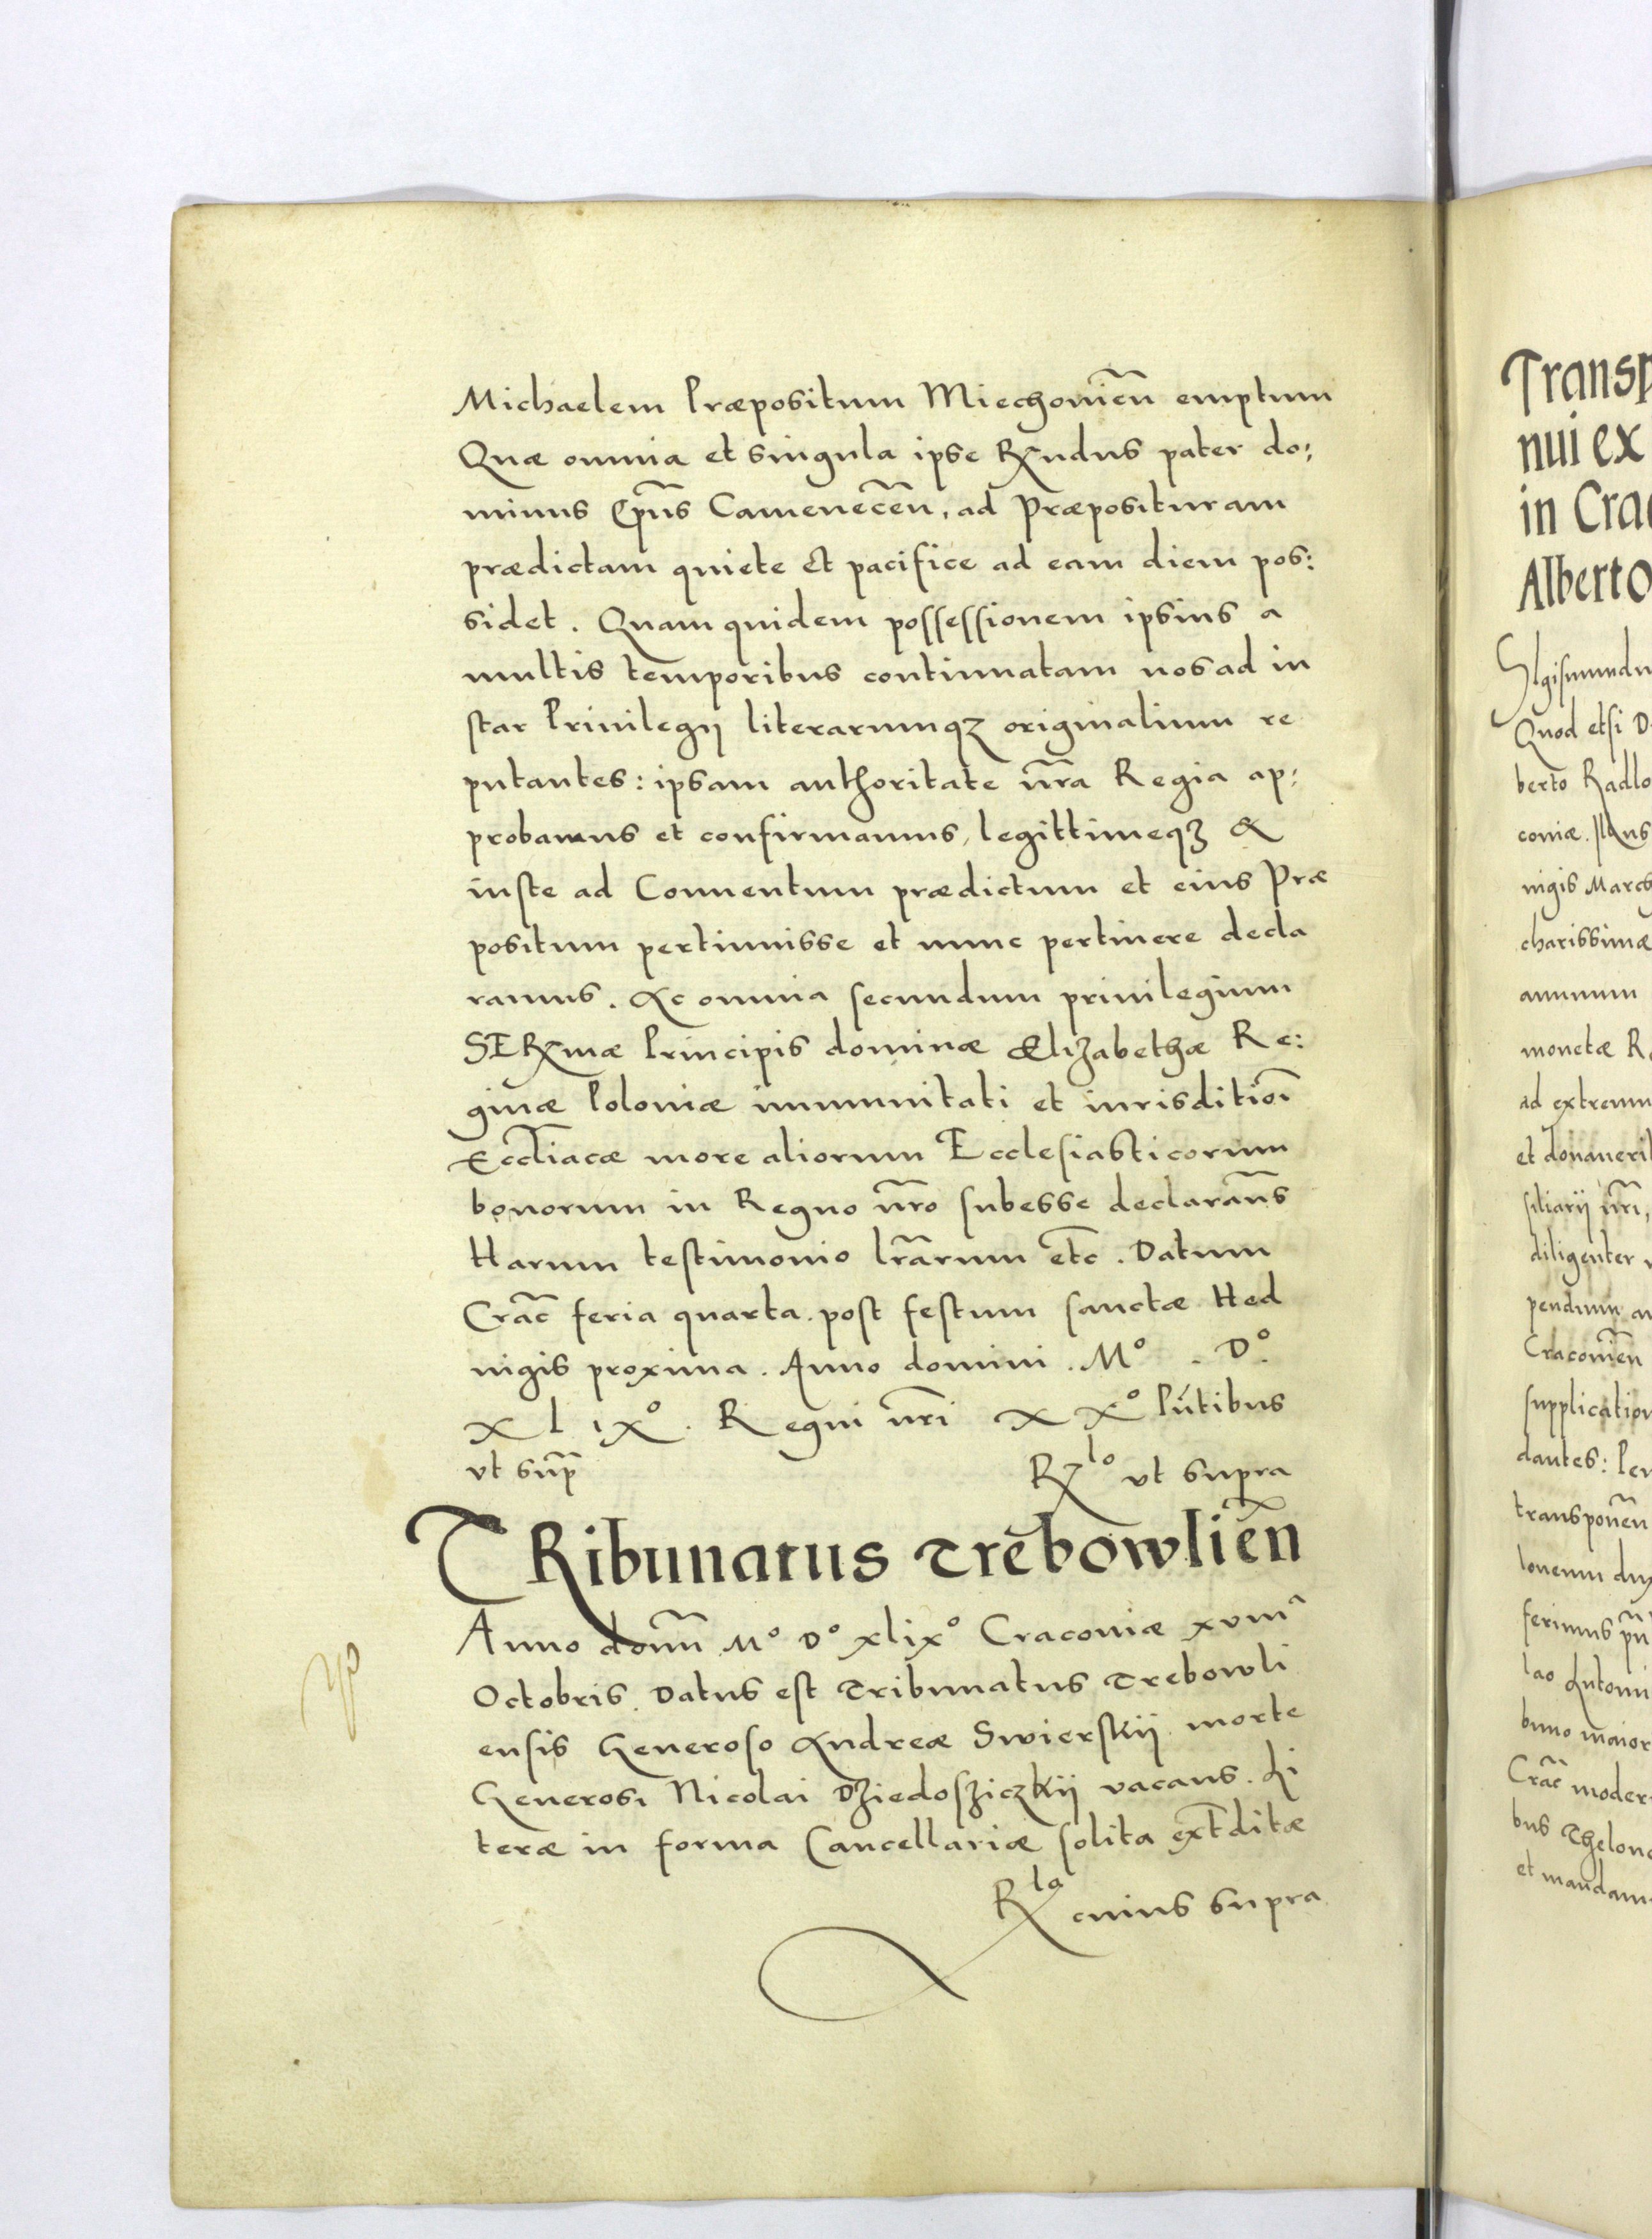 Michaelem Præpositum Miechouien̄ emptum
Quæ omnia et singula ipse Rx̄ndus pater do:
minus Ep̄us Camenecen̄, ad Præposituram
prædictam quiete et pacifice ad eam diem pos:
sidet. Quam quidem possessionem ipsius a
multis temporibus continuatam nos ad in
star Priuilegij literarumqꝫ originalium re
putantes: ipsam authoritate nr̄a Regia ap:
probamus et confirmamus, legittimeqꝫ &
iuste ad Conuentum prædictum et eius Præ
positum pertinuisse et nunc pertinere decla
ramus. Ac omnia secundum priuilegium
SERmæ Principis dominæ Elizabethæ Re:
ginæ Poloniæ immunitati et iurisditioī
Eccl̄iacæ more aliorum Ecclesiasticorum
bonorum in Regno nr̄o subesse declaran̄s
Harum testimonio lr̄arum etc̄. Datum
Crac̄ feria quarta. post festum sanctæ Hed
uigis proxima. Anno domini. M° . D°.
X L IX°. Regni nr̄i XX° Pn̄tibus
vt sup̄
Rlo vt supra
TRibunatus Trebowlien̄
Anno domn̄ M° D° xlix° Cracouiæ xviiia
Octobris. Datus est Tribunatus Trebowli
ensis Generoso Andreæ Swierskij morte
Generosi Nicolai Dziedosziczkij vacans. Li
teræ in forma Cancellariæ solita ext̄ditæ
Rla cuius supra
Transp
nui ex
in Cra
Alberto
SIgismundu
Quod etsi D
berto Radlo
couiæ.
uigis March
charissimæ
annuum
monetæ R
ad extremu
et donauerit
siliarij nr̄i,
diligenter
pendium an
Cracouien̄
supplication
dantes: Per
transponen̄
loneum dux
ferimus pn̄
lao Antoni
buno maior
Crac̄ moder
bus Thelone
et mandam